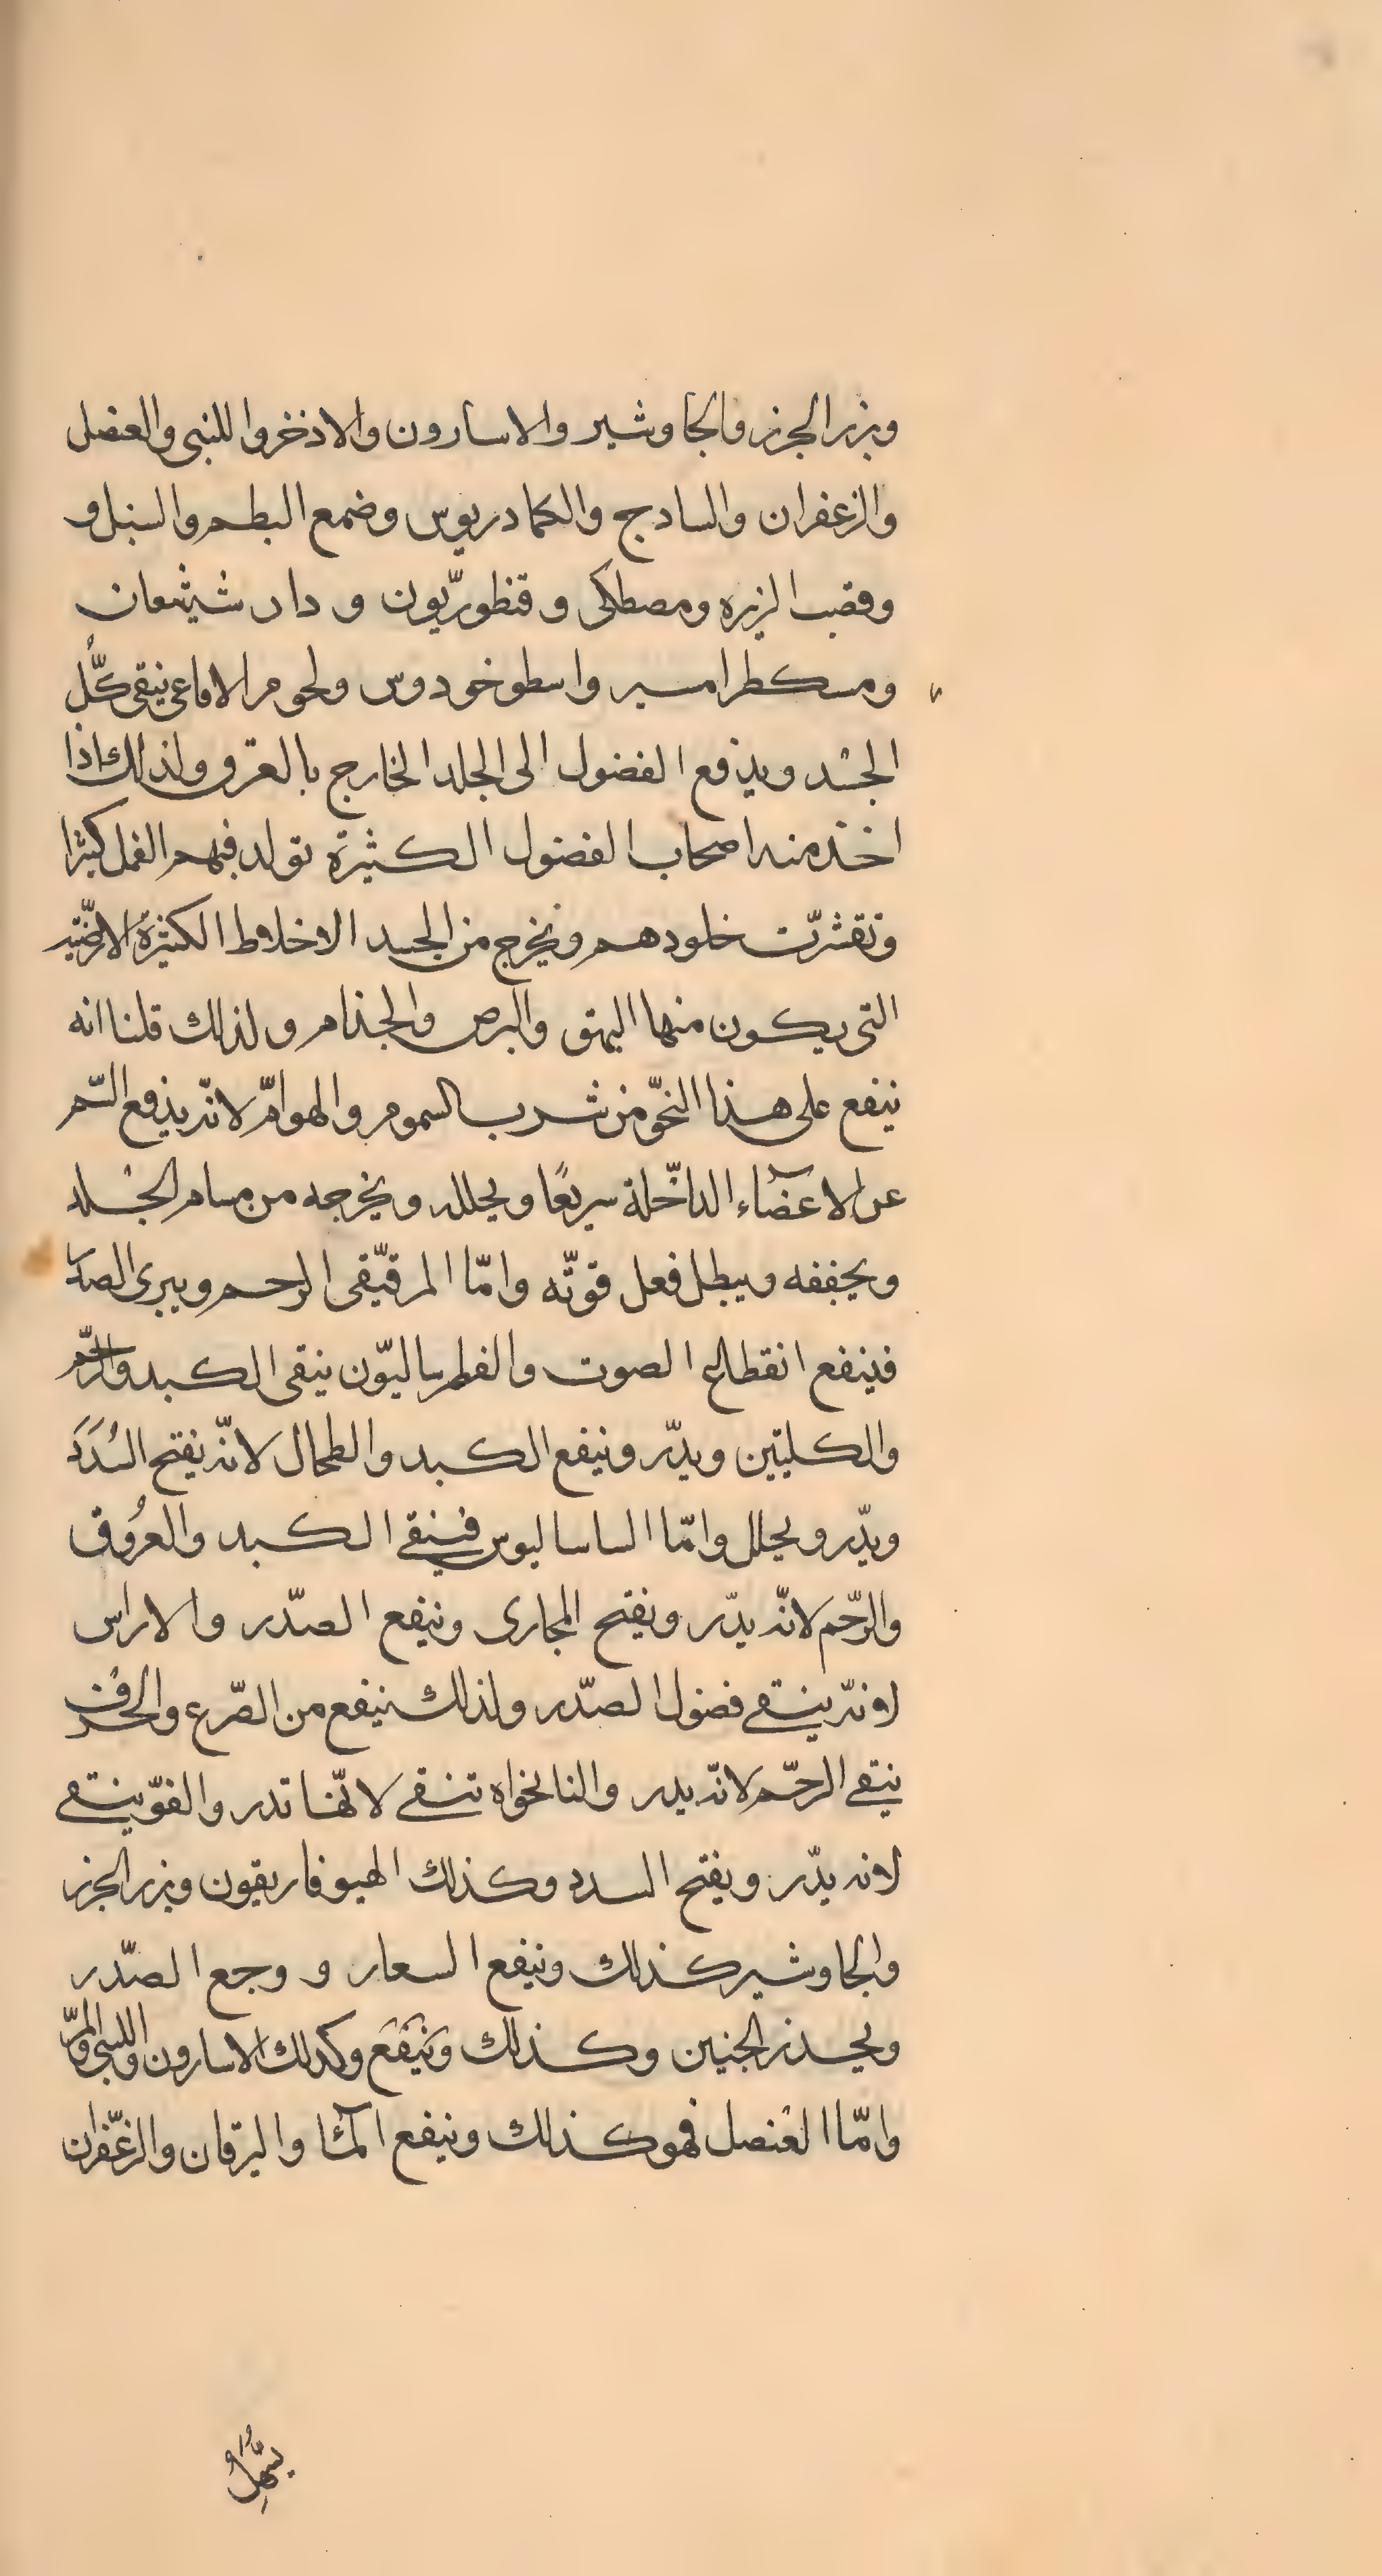 وبزر الجزر والجاوشير والاسارون والاذخر واللبنى والعنصل
والزعفران والسادج والكمادريوس وضمع البطم والسنبل و
وقصب الزيره ومصطكى وقنطوريّون ودار شيشعان
ومسكطرامسير واسطوخودوس ولحوم الافاعى ينقى كلّ
الجسد ويدفع الفضول الى الجلد الخارج بالعرق ولذلك اذا
اخذ منه اصحاب الفضول الكثيرة تولد فيهم القمل كثيرا
وتقشرّت خلودهم ويخرج من الجسد الاخلاط الكثيرة الارضّيه
التى يكون منها البهق والبرص والجذام ولذلك قلنا انه
ينفع على هذا النحوّ من شرب السموم والهوامّ لانّه يدفع السّم
عن الاعضآء الداخّلة سريعًا ويحلله ويخرجه من مسام الجلد
ويجففه ويبطل فعل قوتّه وامّا المر فيّنقى الرحم ويبرى الصد
فينفع انقطاع الصوت والفطرساليّون ينقى الكبد والرحّم
والكليتين ويدّر وينفع الكبد والطحال لانّه يفتح السُدَدَ
ويدّر ويحلل وامّا الساساليوس فينقى الكبد والعرُوق
والرّحم لانّه يدّر ويفتح المجارى وينفع الصّدر والاراس
لانّه ينقى فضول الصّدر ولذلك ينفع من الصّرع والحُرف
ينقى الرحّم لانّه يدر والنانخواه تنقى لانّها تدر والفوّ ينقى
لانه يدّر ويفتح السدد وكذلك الهيوفاريقون وبزر الجزر
والجاوشير كذلك وينفع السعار و وجع الصّدر
ويحذر الجنين وكذلك وَيَنْفَع وكدلك الاسارون واللبنى والمرّ
وامّا العُنصل فهو كذلك وينفع المآء واليرقان والزعّفران